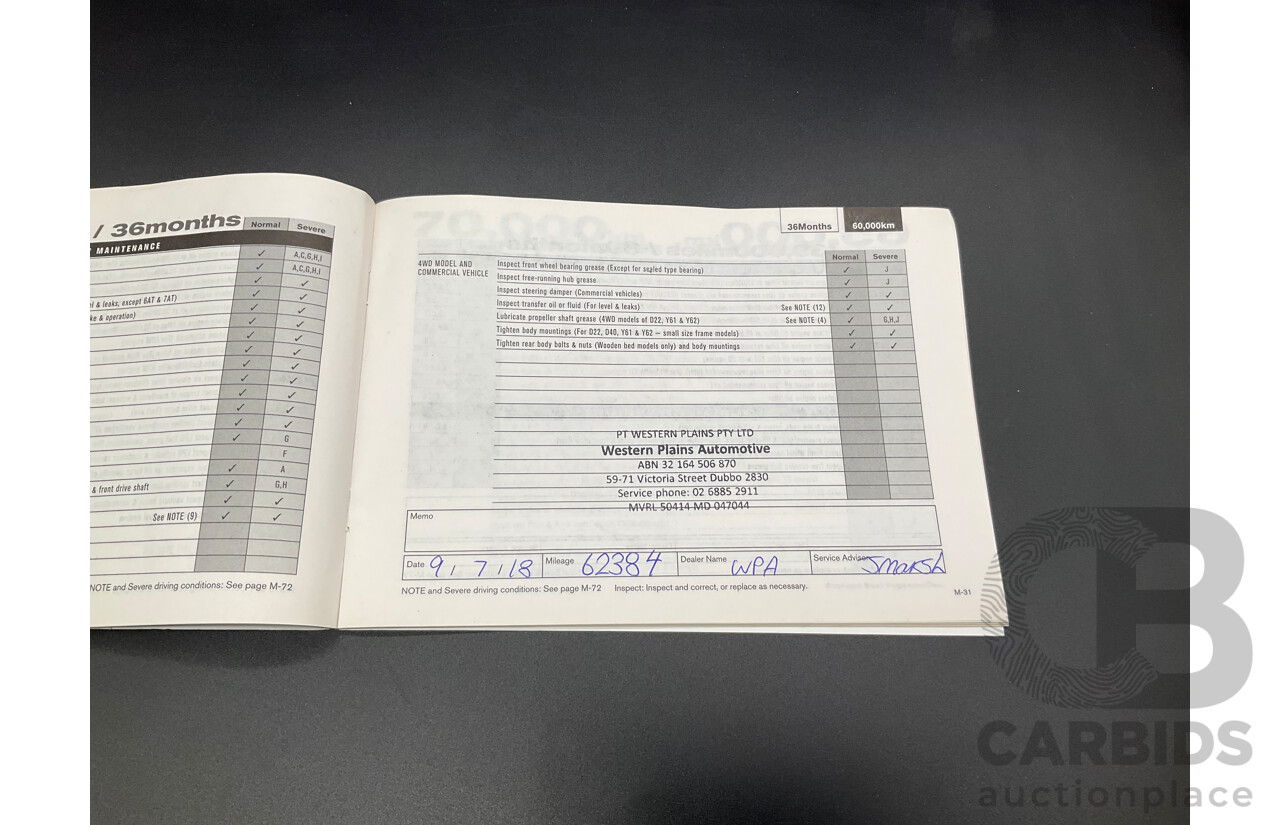 / 36months Normal Severe
MAINTENANCE
✓ A,C,G,H,I
✓ A,C,G,H,I
✓ ✓
l & leaks, except 6AT & 7AT) ✓ ✓
ke & operation) ✓ ✓
✓ ✓
✓ ✓
✓ ✓
✓ ✓
✓ ✓
✓ ✓
✓ ✓
✓ G
F
✓ A
& front drive shaft ✓ G,H
✓ ✓
See NOTE (9) ✓ ✓
NOTE and Severe driving conditions: See page M-72
36Months 60,000km
Normal Severe
4WD MODEL AND
COMMERCIAL VEHICLE
Inspect front wheel bearing grease (Except for sealed type bearing) ✓ J
Inspect free-running hub grease ✓ J
Inspect steering damper (Commercial vehicles) ✓ ✓
Inspect transfer oil or fluid (For level & leaks) See NOTE (12) ✓ ✓
Lubricate propeller shaft grease (4WD models of D22, Y61 & Y62) See NOTE (4) ✓ G,H,J
Tighten body mountings (For D22, D40, Y61 & Y62 – small size frame models) ✓ ✓
Tighten rear body bolts & nuts (Wooden bed models only) and body mountings ✓ ✓
PT WESTERN PLAINS PTY LTD
Western Plains Automotive
ABN 32 164 506 870
59-71 Victoria Street Dubbo 2830
Service phone: 02 6885 2911
MVRL 50414 MD 047044
Memo
Date 9, 7, 18 Mileage 62384 Dealer Name WPA Service Advisor Jmarsh
NOTE and Severe driving conditions: See page M-72 Inspect: Inspect and correct, or replace as necessary.
M-31
CB
CARBIDS
auctionplace